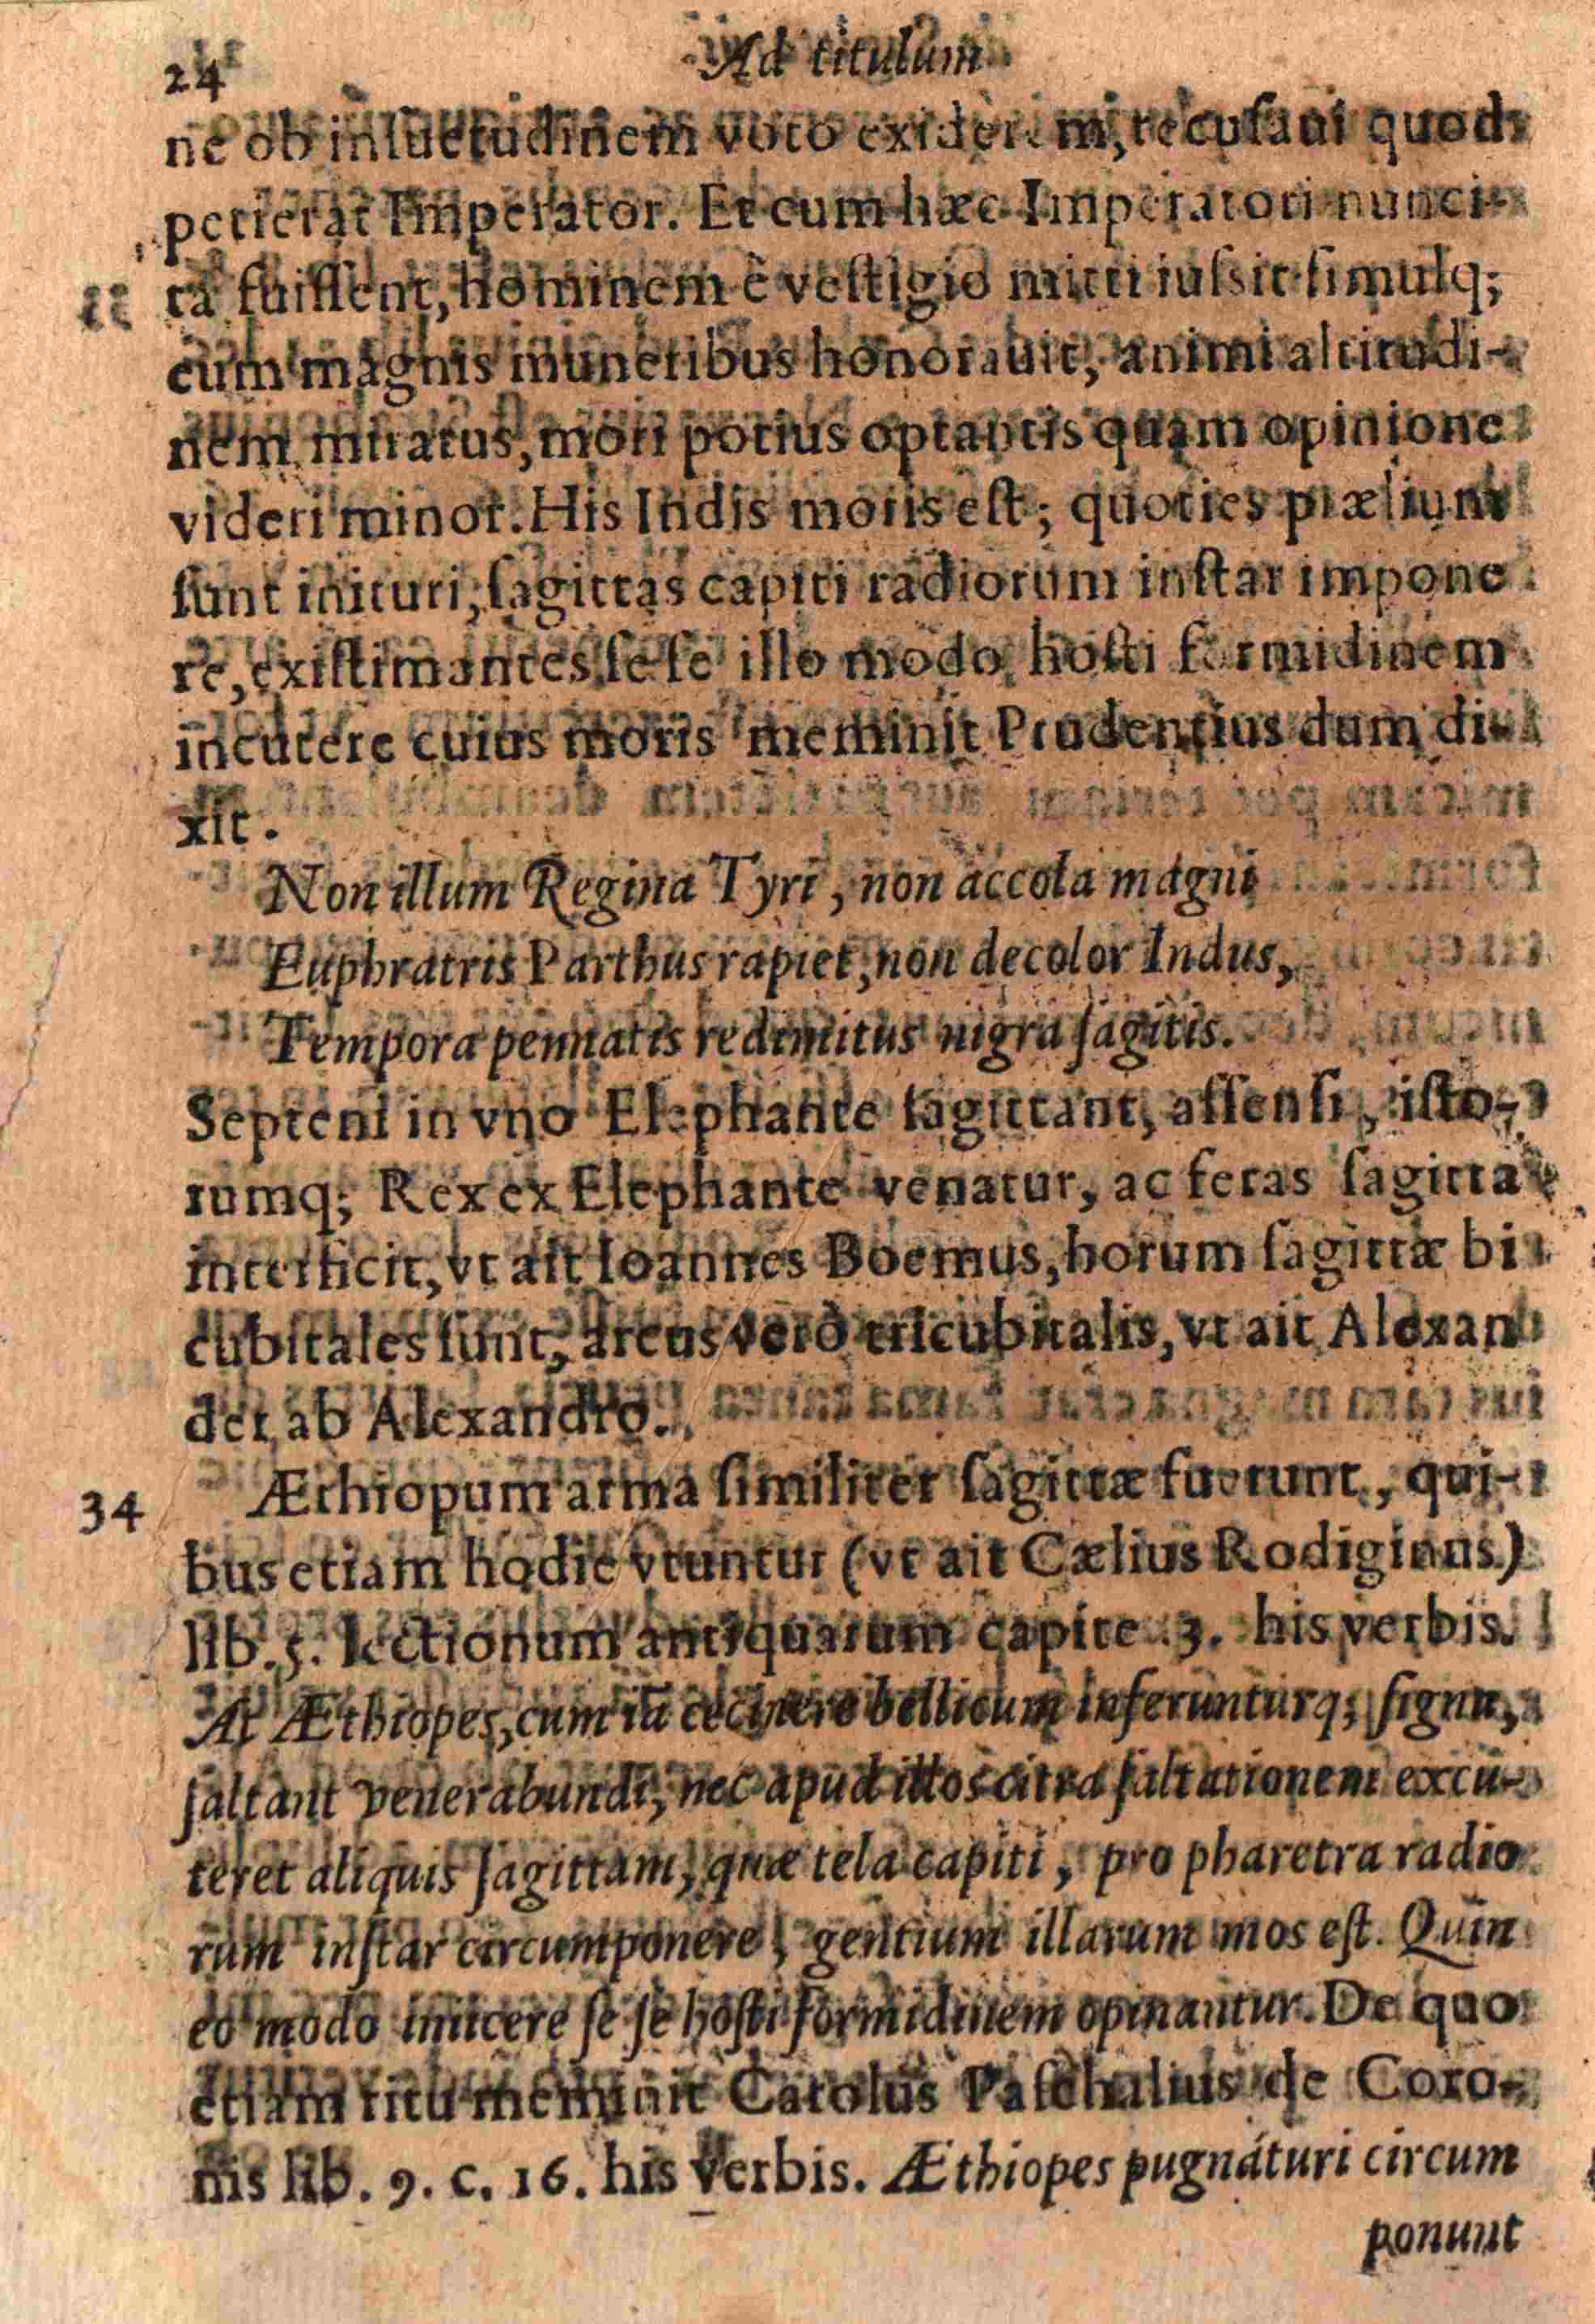 24
Ad titulum
ne ob insuetudinem voto exiderem, recusaui quod
petierat Imperator. Et cum hæc Imperatori nunci-
ta fuissent, hominem è vestigio mitti iussit simulq;
cum magnis muneribus honorauit, animi altitudi-
nem miratus, mori potius optantis quam opinione
videri minor. His Indis moris est; quoties prælium
sunt inituri, sagittas capiti radiorum instar impone
re, existimantes se se illo modo hosti formidinem
incutere cuius moris meminit Prudentius dum di-
xit.
Non illum Regina Tyri, non accola magni
Euphratris Parthus rapiet, non decolor Indus,
Tempora pennatis redimitus nigra sagitis.
Septeni in vno Elephante sagittant, assensi, isto-
rumq; Rex ex Elephante venatur, ac feras sagitta
interficit, vt ait Ioannes Boemus, horum sagittæ bi
cubitales sunt, arcus verò tricubitalis, vt ait Alexan
der ab Alexandro.
34
Æthiopum arma similiter sagittæ fuerunt, qui-
bus etiam hodie vtuntur (vt ait Cælius Rodiginus)
lib. 5. lectionum antiquarum capite 3. his verbis.
At Æthiopes, cum iã cecinere bellicum inferunturq; signa,
saltant venerabundi, nec apud illos citra saltationem excu-
teret aliquis sagittam, quæ tela capiti, pro pharetra radio
rum instar circumponere, gentium illarum mos est. Quin
eo modo iniicere se se hosti formidinem opinantur. De quo
etiam ritu meminit Carolus Paschalius de Coro-
nis lib. 9. c. 16. his verbis. Æthiopes pugnáturi circum
ponunt